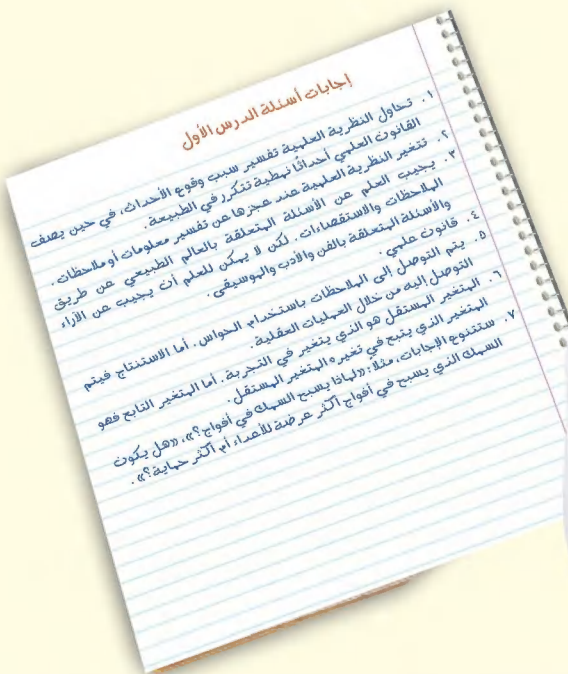 إجابات أسئلة الدرس الأول
١. تحاول النظرية العلمية تفسير سبب وقوع الأحداث، في حين يصف
القانون العلمي أحداثًا نمطية تتكرر في الطبيعة.
٢. تتغير النظرية العلمية عند عجزها عن تفسير معلومات أو ملاحظات.
٣. يجيب العلم عن الأسئلة المتعلقة بالعالم الطبيعي عن طريق
الملاحظات والاستقصاءات. لكن لا يمكن للعلم أن يجيب عن الآراء
والأسئلة المتعلقة بالفن والأدب والموسيقى.
٤. قانون علمي.
٥. يتم التوصل إلى الملاحظات باستخدام الحواس. أما الاستنتاج فيتم
التوصل إليه من خلال العمليات العقلية.
٦. المتغير المستقل هو الذي يتغير في التجربة. أما المتغير التابع فهو
المتغير الذي يتبع في تغيره المتغير المستقل.
٧. ستتنوع الإجابات، مثلا: «لماذا يسبح السمك في أفواج؟»، «هل يكون
السمك الذي يسبح في أفواج أكثر عرضة للأعداء أم أكثر حماية؟».